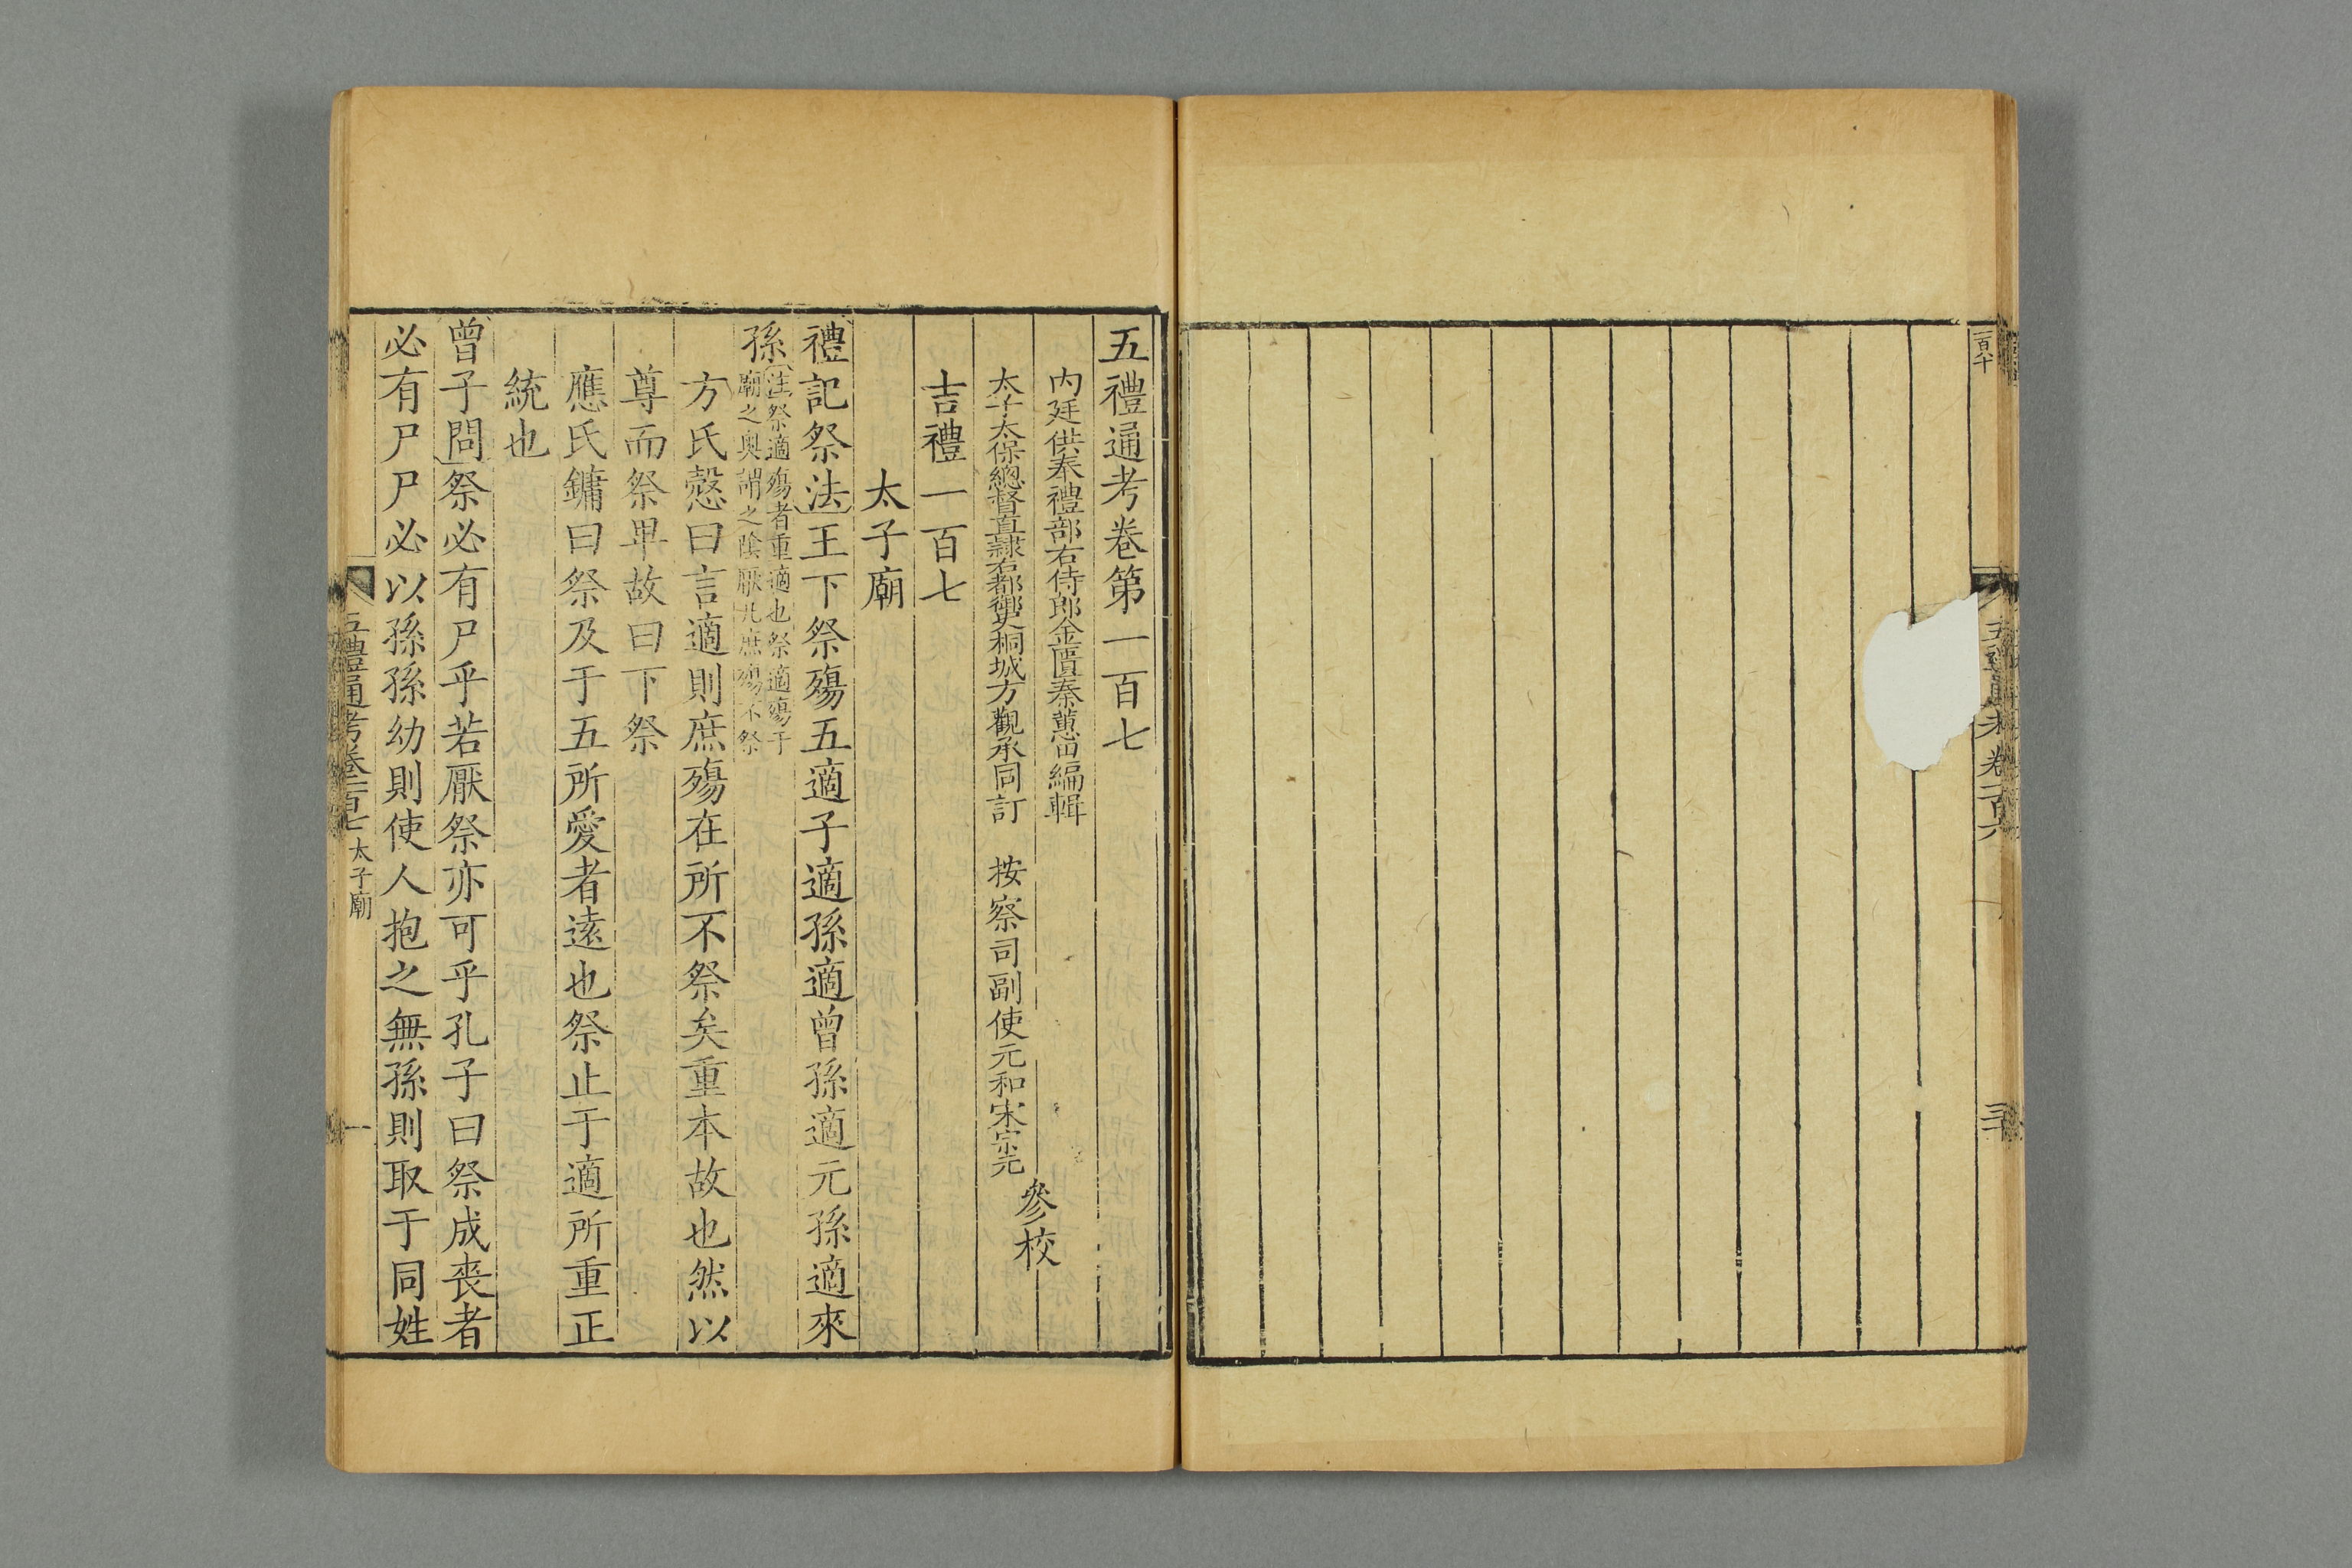 一百八十
五禮通考卷一百六
三十
五禮通考卷第一百七
內廷供奉禮部右侍郎金匱秦蕙田編輯
太子太保總督直隸右都御史桐城方觀承同訂
按察司副使元和宋宗元
參校
吉禮一百七
太子廟
禮記祭法王下祭殤五適子適孫適曾孫適元孫適來
孫注祭適殤者重適也祭適殤于
廟之奧謂之陰厭凡庶殤不祭
方氏慤曰言適則庶殤在所不祭矣重本故也然以
尊而祭卑故曰下祭
應氏鏞曰祭及于五所愛者遠也祭止于適所重正
統也
曾子問祭必有尸乎若厭祭亦可乎孔子曰祭成喪者
必有尸尸必以孫孫幼則使人抱之無孫則取于同姓
五禮通考卷一百七 太子廟
一